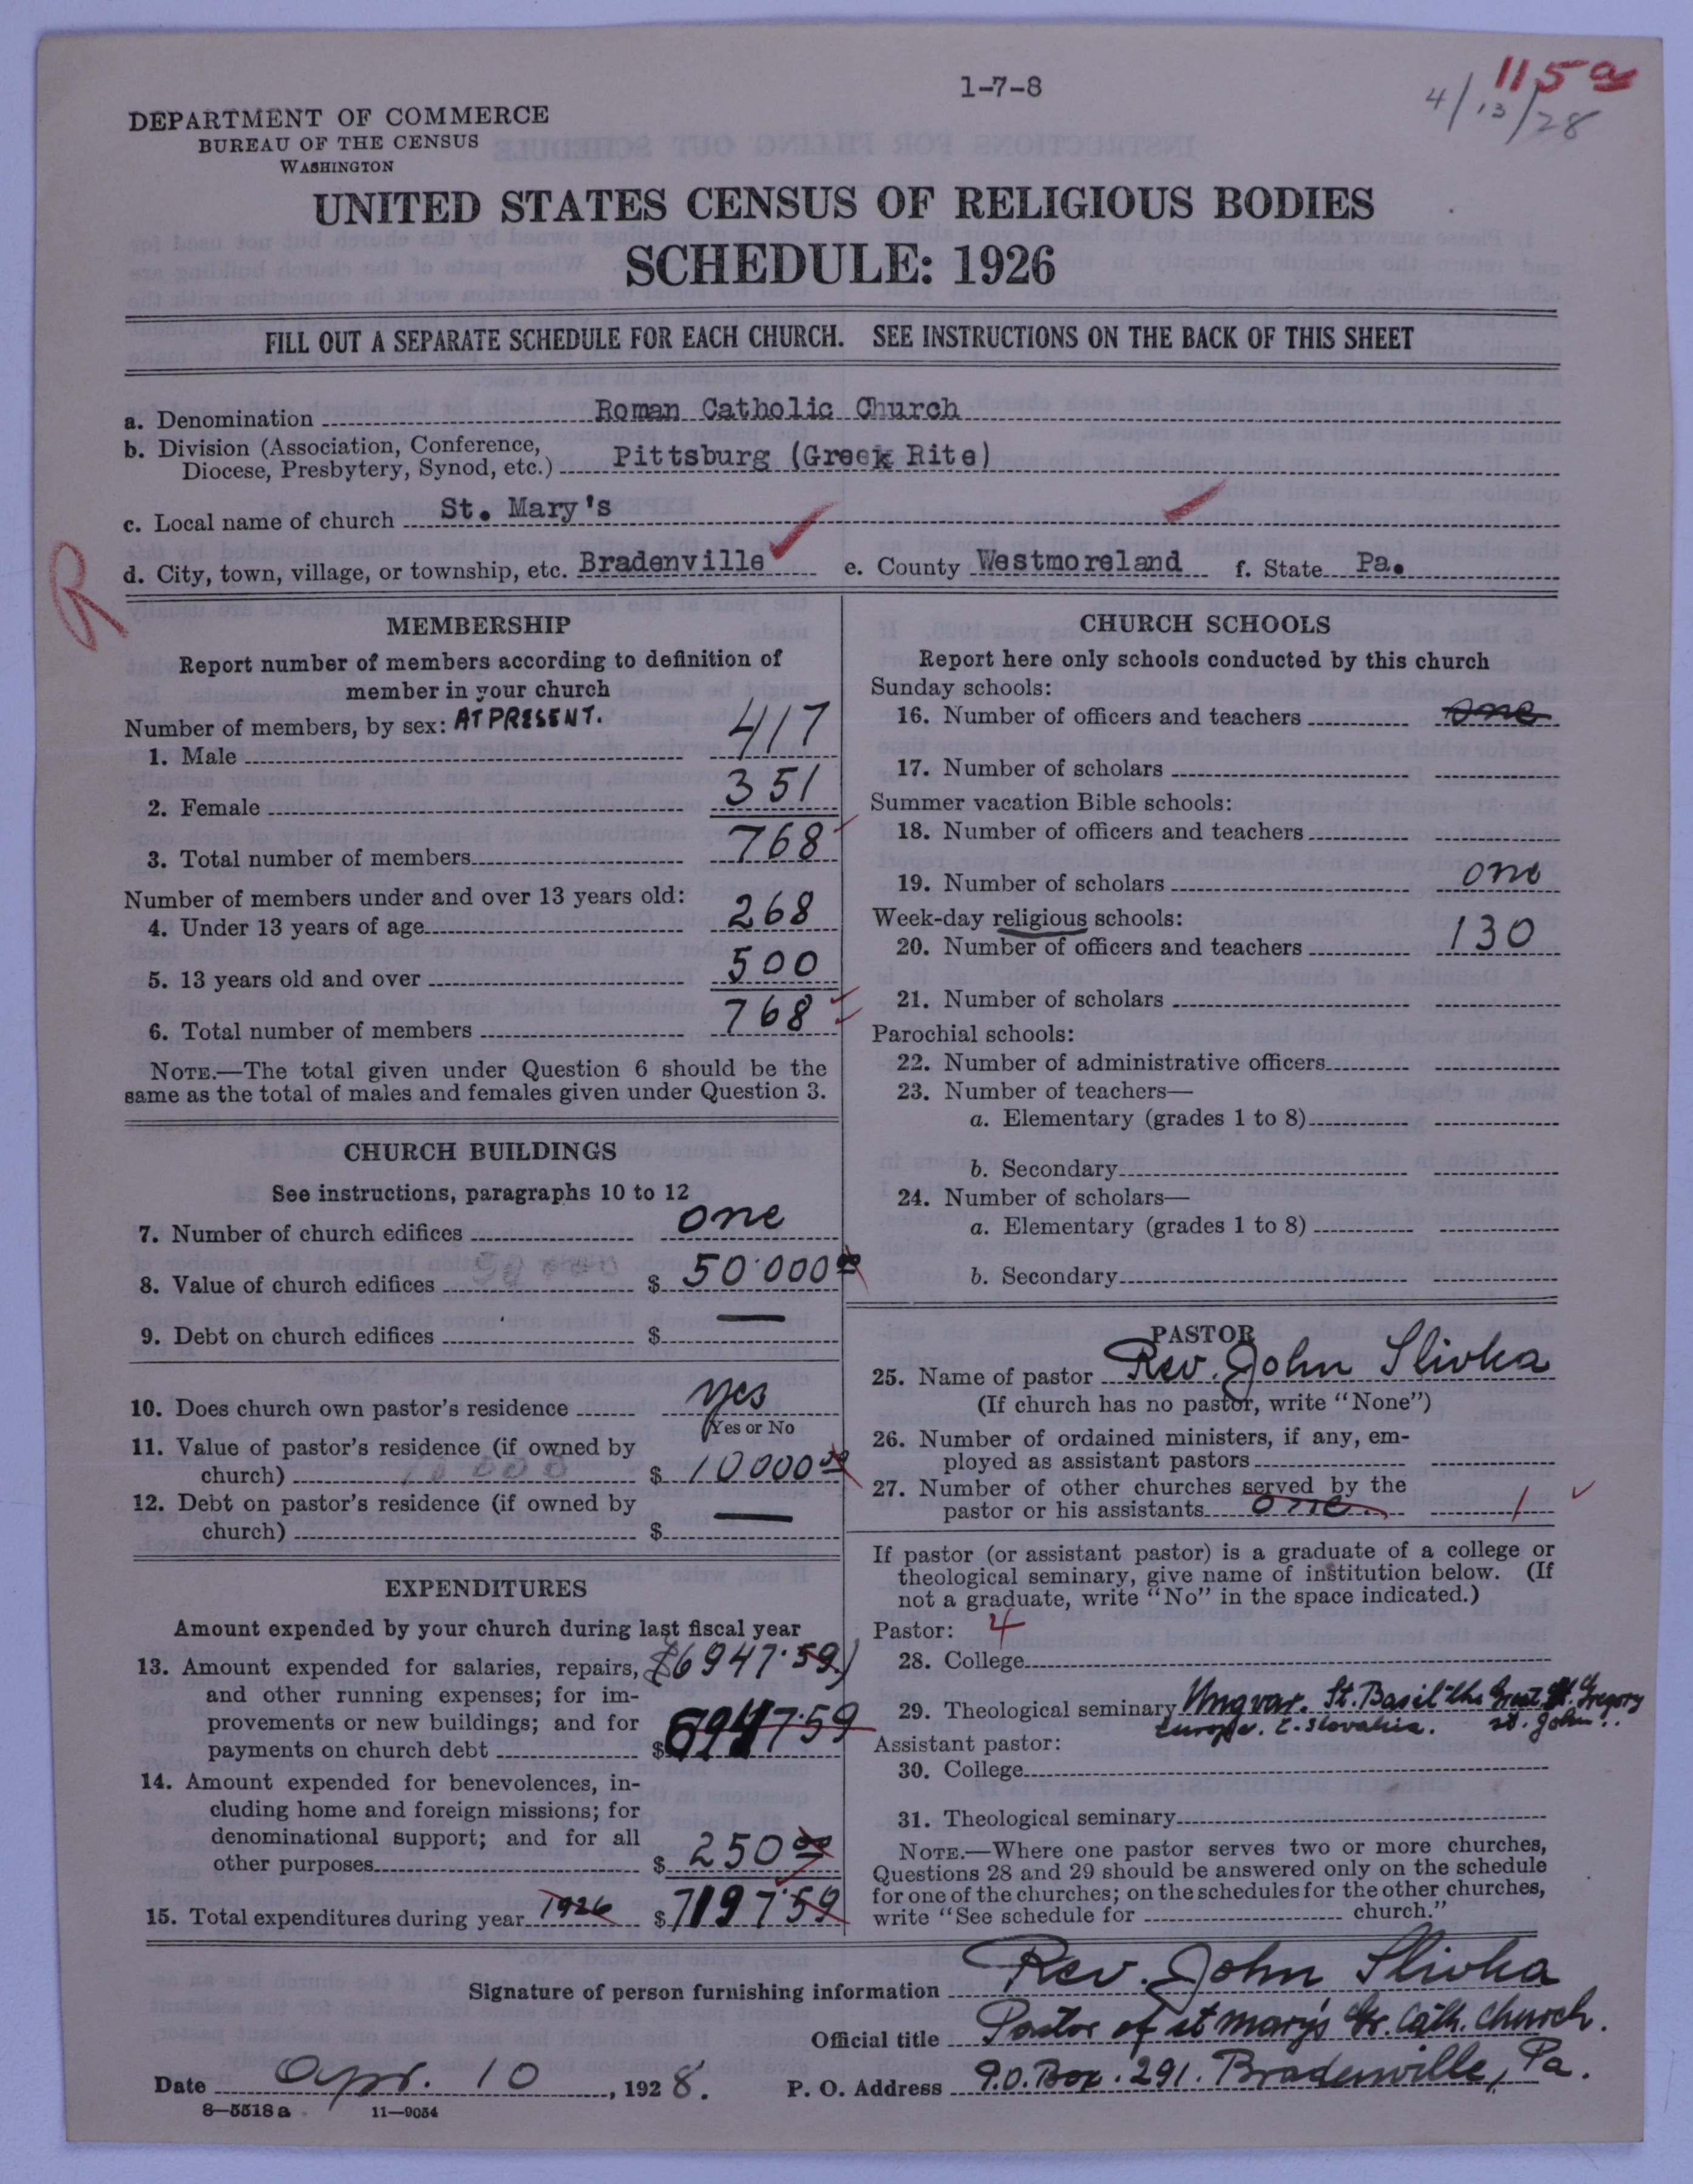 1-7-8
115a
4/13/28
DEPARTMENT OF COMMERCE
BUREAU OF THE CENSUS
WASHINGTON
UNITED STATES CENSUS OF RELIGIOUS BODIES
SCHEDULE: 1926
FILL OUT A SEPARATE SCHEDULE FOR EACH CHURCH. SEE INSTRUCTIONS ON THE BACK OF THIS SHEET
a. Denomination Roman Catholic Church
b. Division (Association, Conference,
Diocese, Presbytery, Synod, etc.) Pittsburg (Greek Rite)
c. Local name of church St. Mary's
d. City, town, village, or township, etc. Bradenville e. County Westmoreland f. State Pa.
R
MEMBERSHIP
Report number of members according to definition of
member in your church
Number of members, by sex: AT PRESENT.
1. Male 417
2. Female 351
3. Total number of members 768
Number of members under and over 13 years old:
4. Under 13 years of age 268
5. 13 years old and over 500
6. Total number of members 768
NOTE.—The total given under Question 6 should be the
same as the total of males and females given under Question 3.
CHURCH BUILDINGS
See instructions, paragraphs 10 to 12
7. Number of church edifices one
8. Value of church edifices 50 000 $ 50·000 00
9. Debt on church edifices $ —
10. Does church own pastor's residence yes
Yes or No
11. Value of pastor's residence (if owned by
church) 10 000 $ 10 000 00
12. Debt on pastor's residence (if owned by
church) $ —
EXPENDITURES
Amount expended by your church during last fiscal year
13. Amount expended for salaries, repairs, $6947·59)
and other running expenses; for im-
provements or new buildings; and for
payments on church debt $ 6947·59
14. Amount expended for benevolences, in-
cluding home and foreign missions; for
denominational support; and for all
other purposes $ 250 00
15. Total expenditures during year 1926 $ 7197·59
CHURCH SCHOOLS
Report here only schools conducted by this church
Sunday schools:
16. Number of officers and teachers one
17. Number of scholars
Summer vacation Bible schools:
18. Number of officers and teachers
19. Number of scholars one
Week-day religious schools:
20. Number of officers and teachers 130
21. Number of scholars
Parochial schools:
22. Number of administrative officers
23. Number of teachers—
a. Elementary (grades 1 to 8)
b. Secondary
24. Number of scholars—
a. Elementary (grades 1 to 8)
b. Secondary
PASTOR
25. Name of pastor Rev. John Slivka
(If church has no pastor, write "None")
26. Number of ordained ministers, if any, em-
ployed as assistant pastors
27. Number of other churches served by the
pastor or his assistants one 1
If pastor (or assistant pastor) is a graduate of a college or
theological seminary, give name of institution below. (If
not a graduate, write "No" in the space indicated.)
Pastor: 4
28. College
29. Theological seminary Ungvar. St. Basil the Great St. Gregory
Europe. C. Slovakia. St. John.
Assistant pastor:
30. College
31. Theological seminary
NOTE.—Where one pastor serves two or more churches,
Questions 28 and 29 should be answered only on the schedule
for one of the churches; on the schedules for the other churches,
write "See schedule for church."
Signature of person furnishing information Rev. John Slivka
Official title Pastor of St Mary's Gr. Cath. Church.
Date Apr. 10, 1928. P. O. Address P.O. Box. 291. Bradenville, Pa.
8—5518 a 11—9054